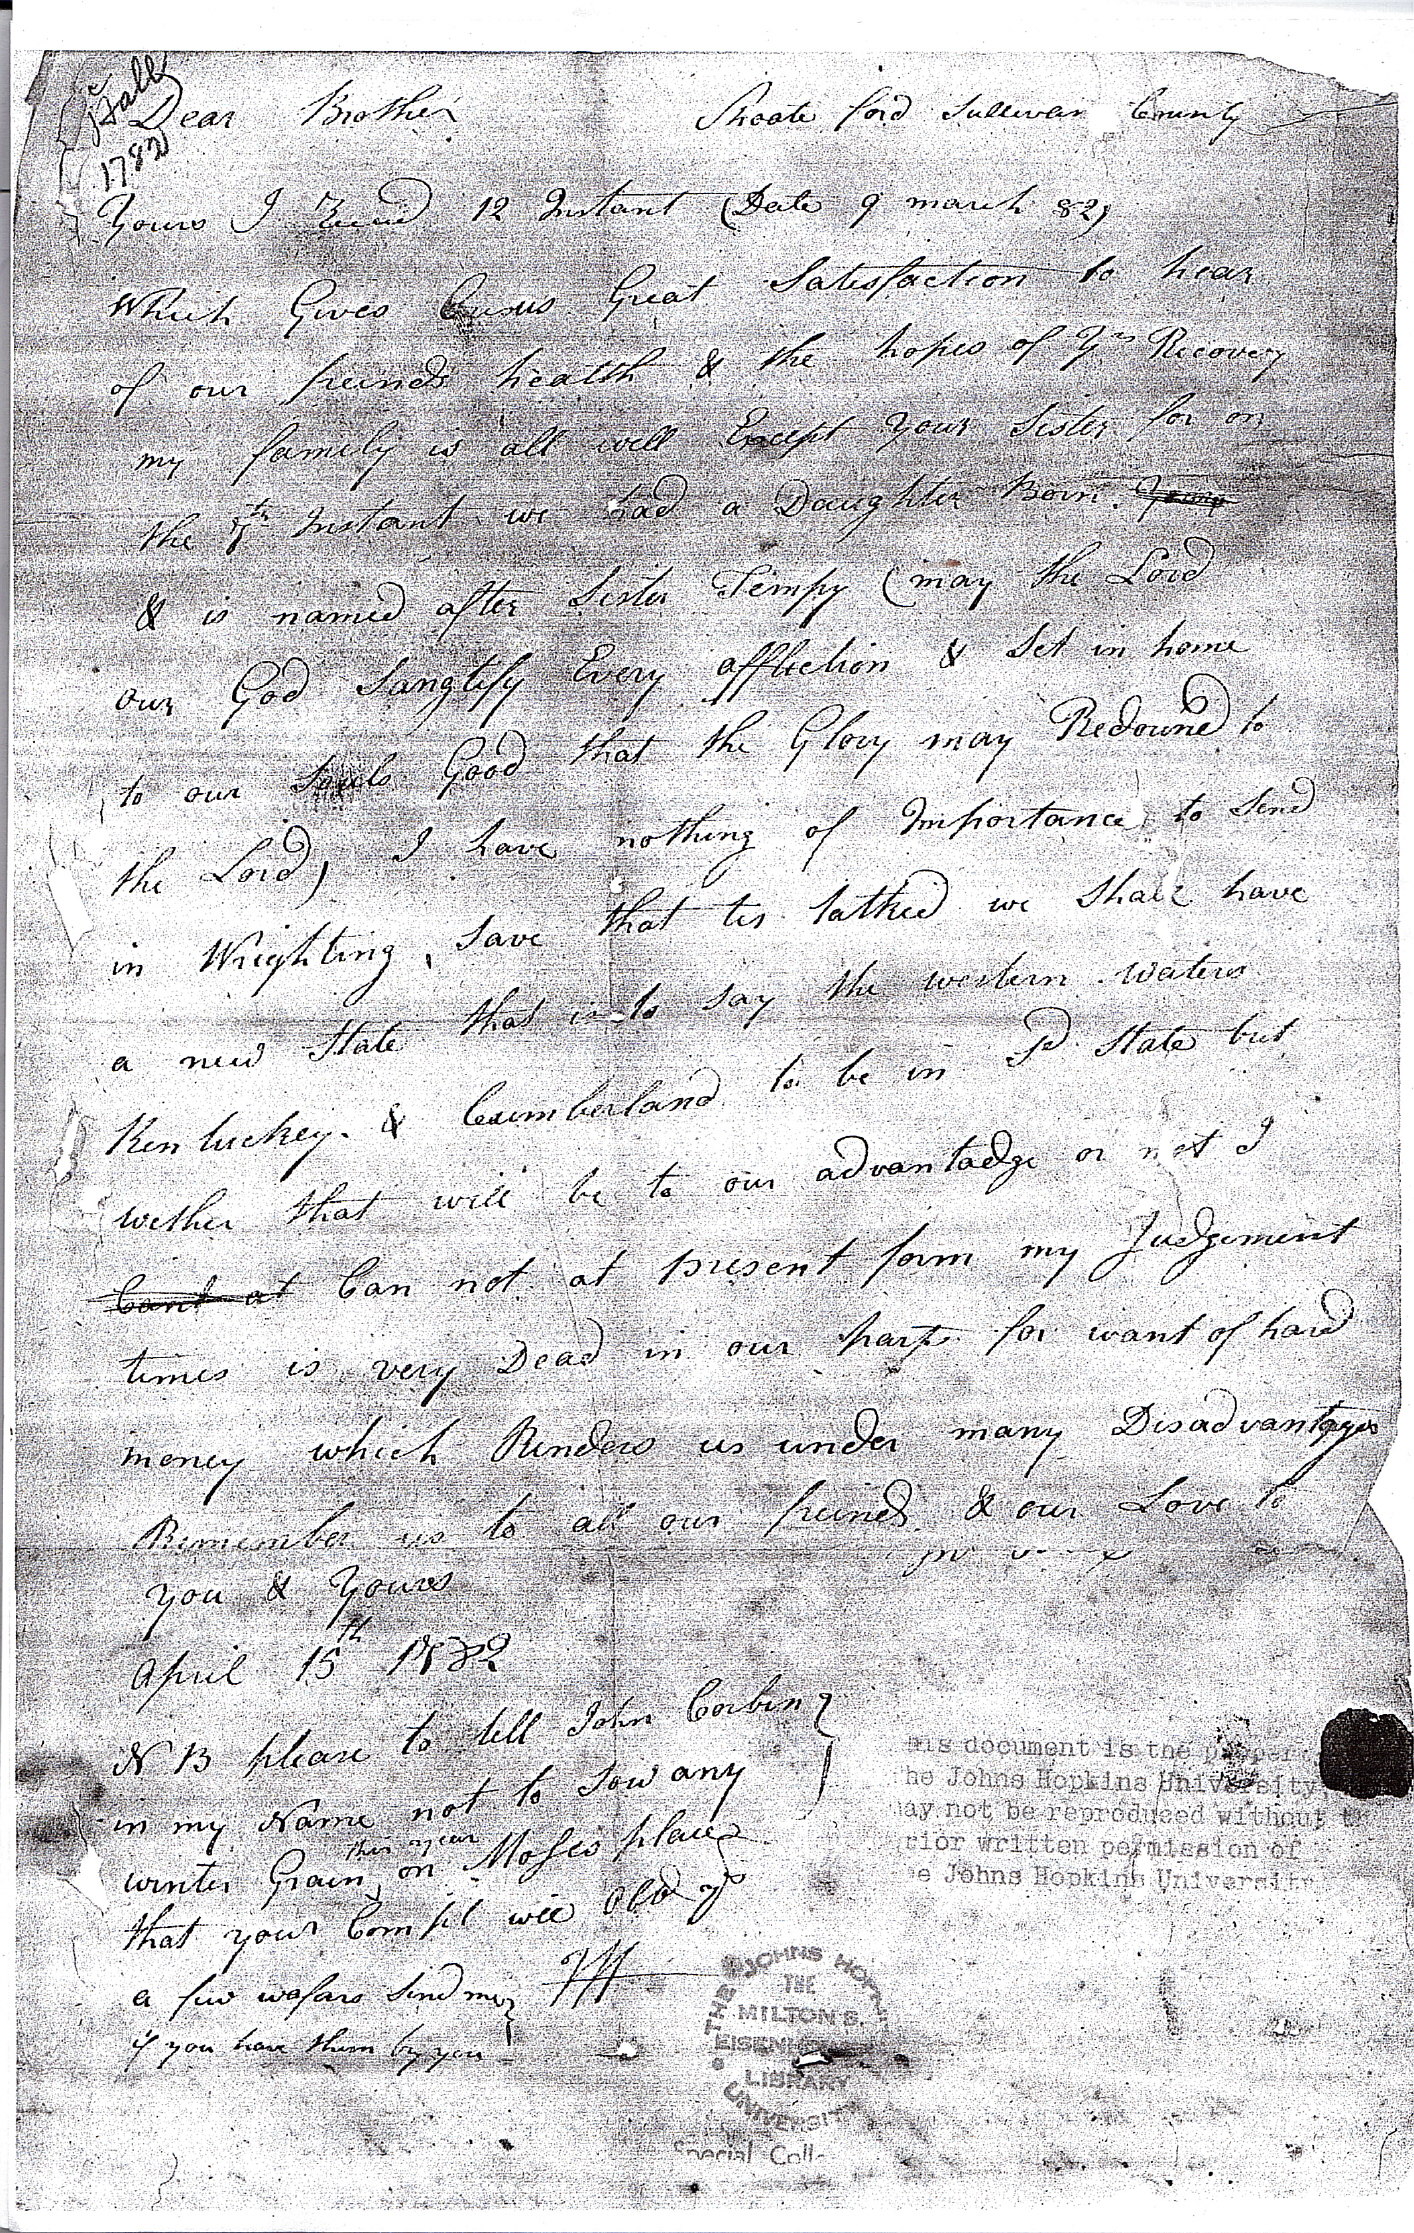 Hall
1782
Dear Brother Shoate ford Sullivan County
Yours I 12 Instant (Date 9 march 82)
Which Gives us Great Satisfaction to hear
of our freinds health & the hopes of Yr Recovery
my family is all well Except Your Sister for on
the 7th Instant we had a Daughter Born
& is named after Sister Tempy (may the Lord
our God Sanglify Every affliction & Set in home
to our Souls Good that the Glory may Redound to
the Lord) I have nothing of Importance to Send
in Wrighting, Save that tis talked we Shall have
a new State that is to Say the western waters
Kentuckey & Cumberland to be in Sd State but
wether that will be to our advantadge or not I
Cant at Can not at present form my Judgement
times is very Dead in our parts for want of hard
money which Renders us under many Disadvantages
Remember us to all our freinds & our Love to
you & Yours
April 15th 1782
N B please to tell John Corbin
in my Name not to Sow any
winter Grain this year on Moses place
that your Compl will
a few wafars Send me
if you have them by you
his document is the proper
he Johns Hopkins University,
ay not be reproduced without th
rior written permission of
e Johns Hopkins University
THE JOHNS HOPKINS UNIVERSITY
THE
MILTON S.
EISENHOWER
LIBRARY
Special Coll